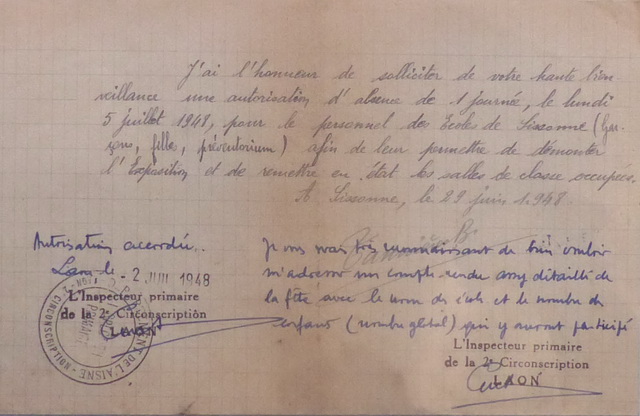 J'ai l'honneur de solliciter de votre haute bien
veillance une autorisation d'absence de 1 journée, le lundi
5 juillet 1948, pour le personnel des Ecoles de Sissonne (Gar-
çons, filles, préventorium) afin de leur permettre de démonter
l'Exposition et de remettre en état les salles de classe occupées.
A Sissonne, le 29 juin 1948.
Autorisation accordée.
Laon le - 2 JUIL 1948
L'Inspecteur primaire
de la 2e Circonscription
LAON
DE L'AISNE
CIRCONSCRIPTION
Je vous serais très reconnaissant de bien vouloir
m'adresser un compte rendu assez détaillé de
la fête avec le nom des écoles et le nombre d'
enfants (nombre global) qui y auront participé
L'Inspecteur primaire
de la 2e Circonscription
LAON